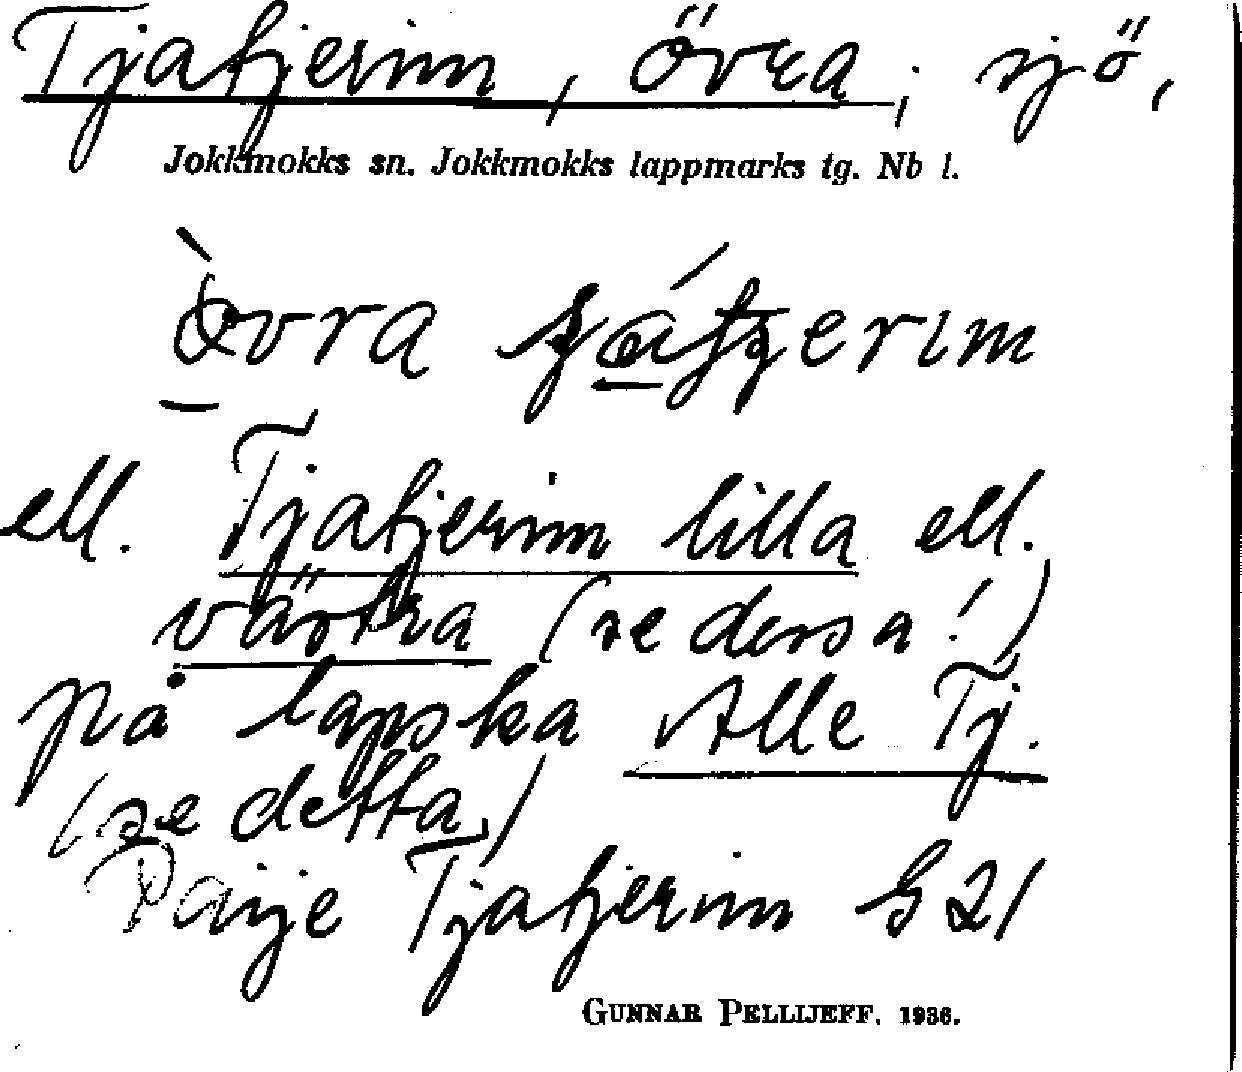 Tjatjerim, övra, sjö,
Jokkmokks sn. Jokkmokks lappmarks tg. Nb l.
övra
ell. Tjatjerim lilla ell.
västra (se dessa!)
på lapska Alle Tj.
(se detta)
Paije Tjatjerim G21
GUNNAR PELLIJEFF. 1936.